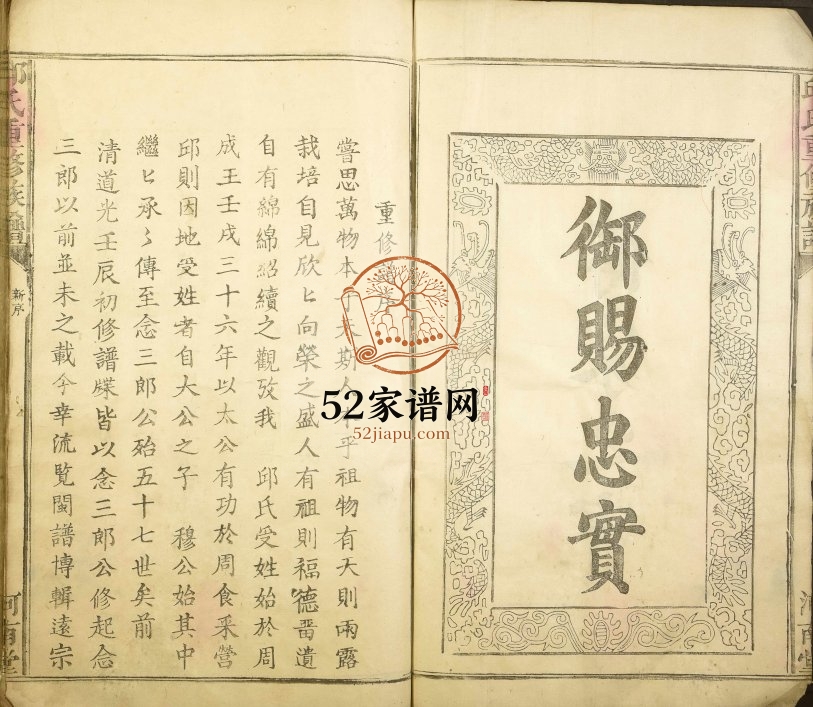 邱氏重修族譜
河南堂
御賜忠實
重修
嘗思萬物本
斯人
乎祖物有天則雨露
栽培自見欣匕向榮之盛人有祖則福德畱遺
自有綿綿紹續之觀攷我 邱氏受姓始於周
成王壬戌三十六年以太公有功於周食采營
邱則因地受姓者自大公之子 穆公始其中
繼匕承〻傳至念三郎公殆五十七世矣前
清道光壬辰初修譜牒皆以念三郎公修起念
三郎以前並未之載今幸流覧閩譜博輯遠宗
邱氏重修族譜
新序
河南堂
52家谱网
52jiapu.com